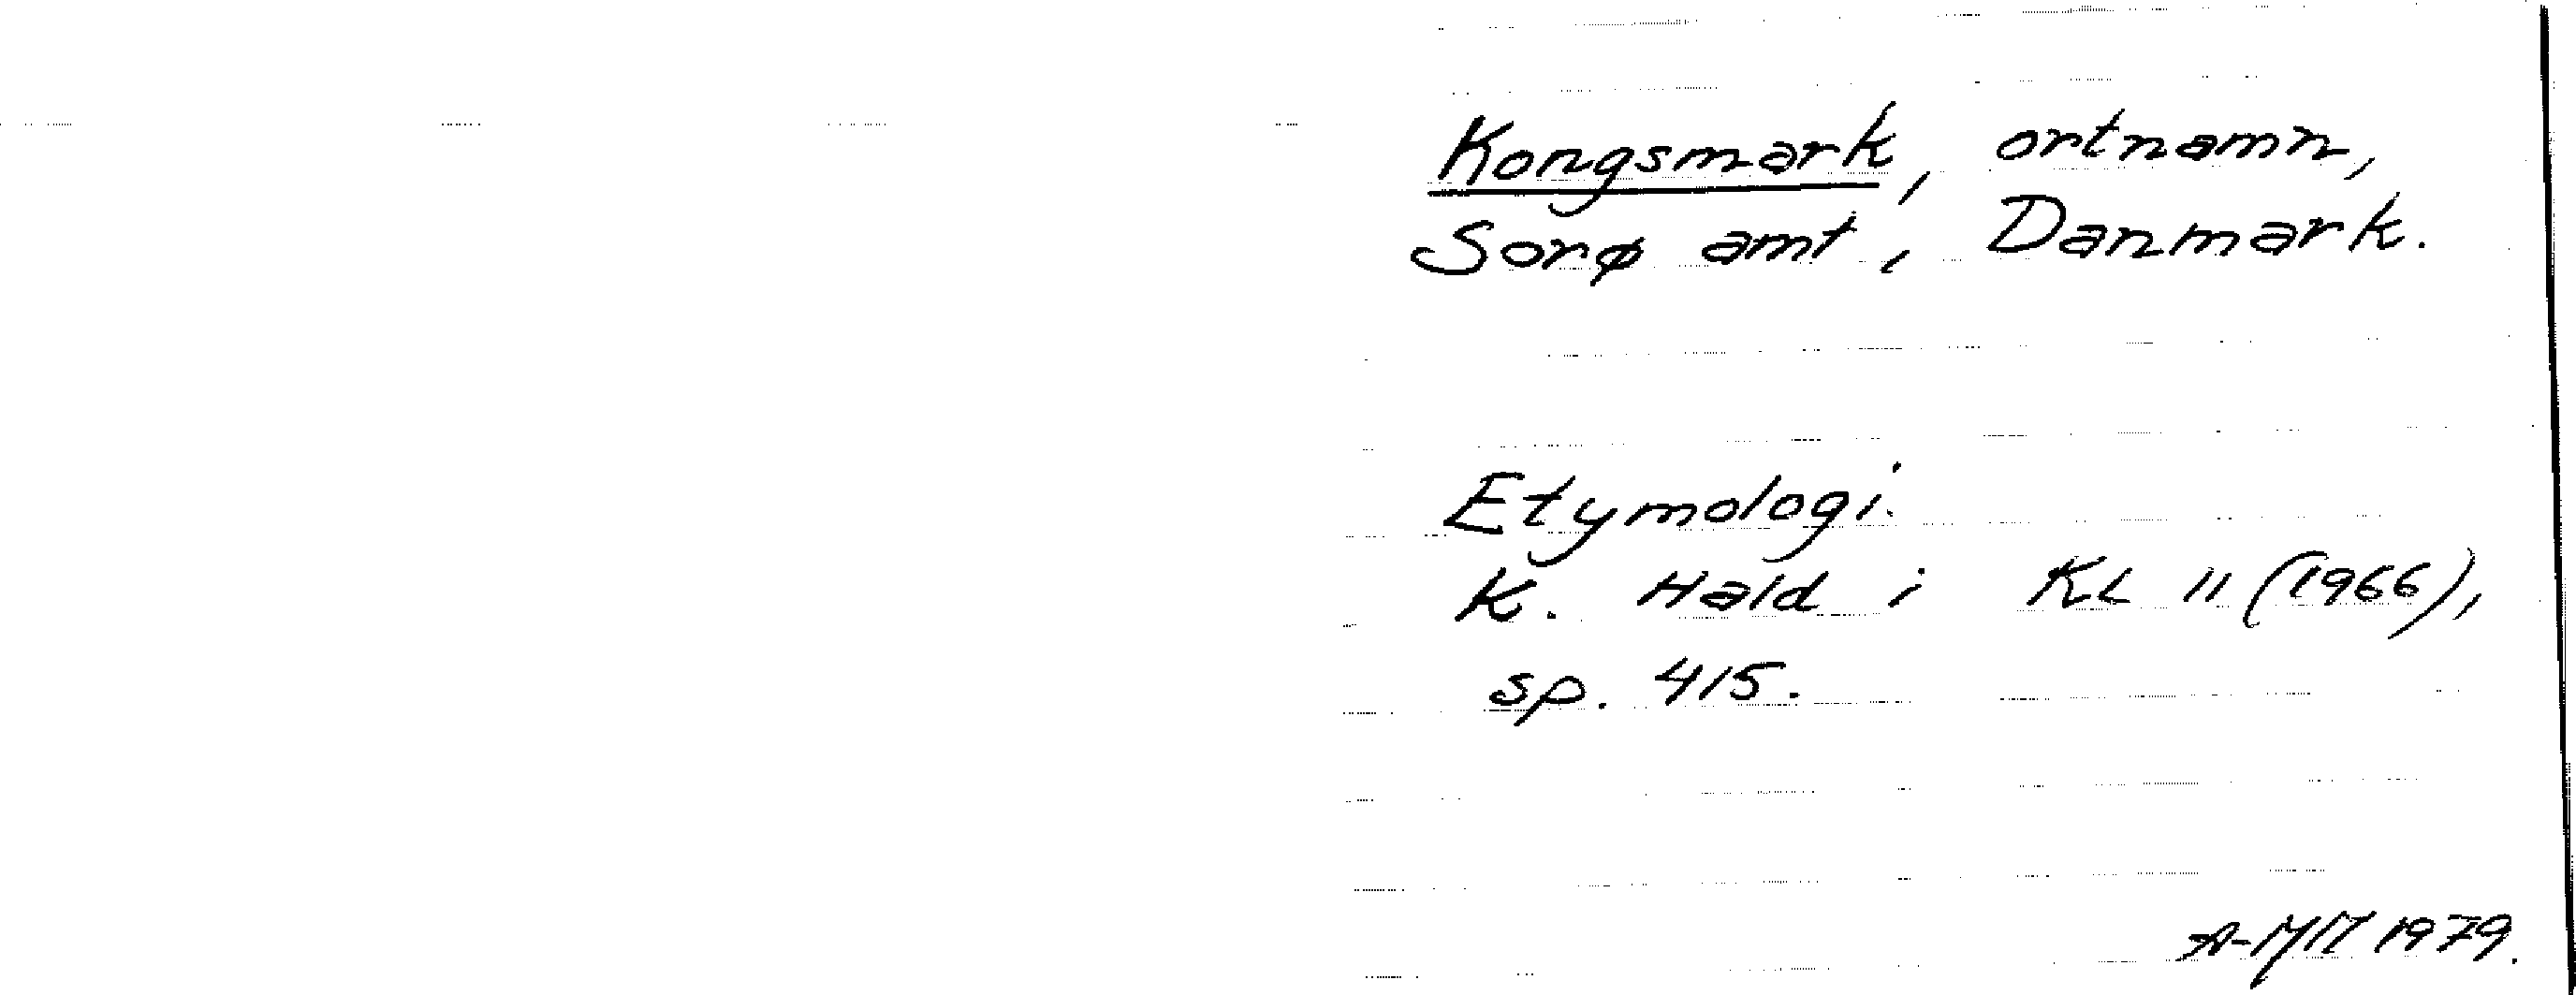 Kongsmark, ortnamn,
Sorø amt, Danmark.
Etymologi.
K. Hald i KL 11 (1966),
sp. 415.
1979.